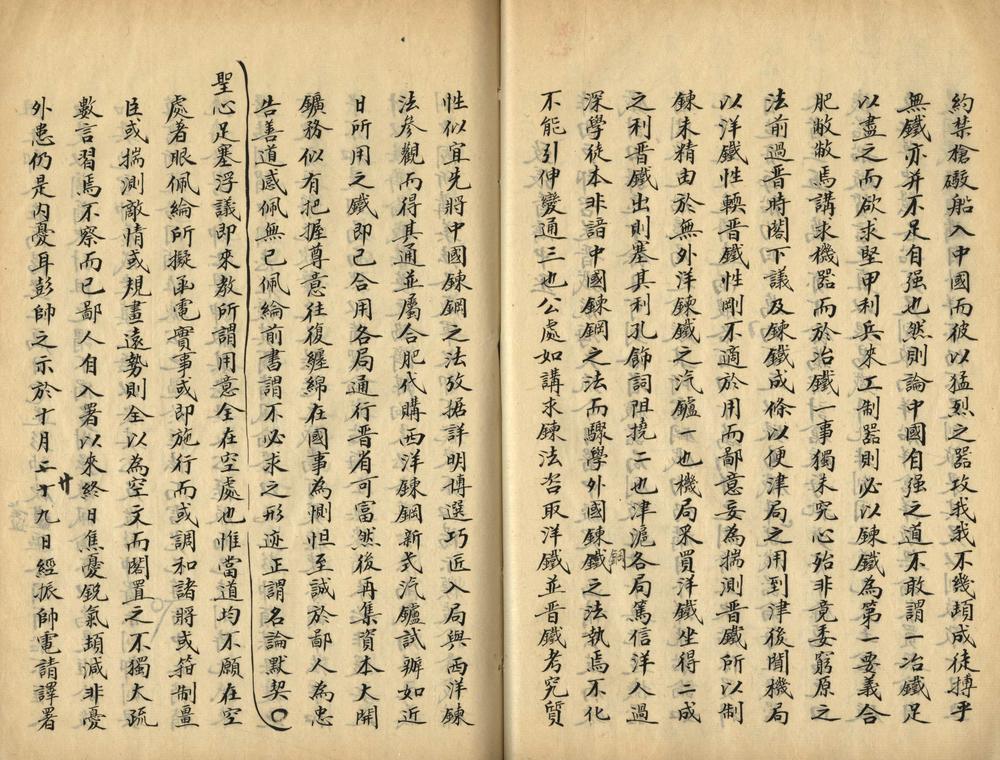 約禁槍礮船入中國而彼以猛烈之器攻我我不幾頓成徒搏乎
無鐵亦并不足自强也然則論中國自强之道不敢謂一冶鐵足
以盡之而欲求堅甲利兵來工制器則必以鍊鐵為第一要義合
肥敝敝焉講求機器而於冶鐵一事獨未究心殆非竟委窮原之
法前過晋時閣下議及鍊鐵成條以便津局之用到津後聞機局
以洋鐵性輭晋鐵性剛不適於用而鄙意妄為揣測晋鐵所以制
鍊未精由於無外洋鍊鐵之汽鑪一也機局采買洋鐵坐得二成
之利晋鐵出則塞其利孔飾詞阻撓二也津滬各局篤信洋人過
深學徒本非諳中國鍊鋼之法而驟學外國鍊鐵鋼之法執焉不化
不能引伸變通三也公處如講求鍊法咨取洋鐵並晋鐵考究質
性似宜先將中國鍊鋼之法攷据詳明博選巧匠入局與西洋鍊
法參觀而得其通並屬合肥代購西洋鍊鋼新式汽鑪試辦如近
日所用之鐵即已合用各局通行晋省可富然後再集資本大開
鑛務似有把握尊意往復纏綿在國事為惻怛至誠於鄙人為忠
告善道感佩無已佩綸前書謂不必求之形迹正謂名論默契
聖心足塞浮議即來教所謂用意全在空處也惟當道均不願在空
處者眼佩綸所擬函電實事或即施行而或調和諸將或箝制畺
臣或揣測敵情或規畫遠勢則全以為空文而閣置之不獨大疏
數言習焉不察而已鄙人自入署以來終日焦憂鋭氣頓減非憂
外患仍是内憂耳彭帥之示於十月二十廿九日經振帥電請譯署